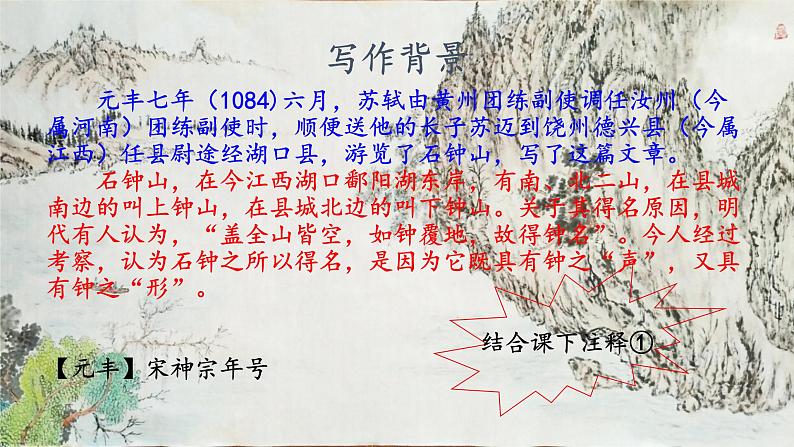 写作背景
元丰七年（1084)六月，苏轼由黄州团练副使调任汝州（今
属河南）团练副使时，顺便送他的长子苏迈到饶州德兴县（今属
江西）任县尉途经湖口县，游览了石钟山，写了这篇文章。
石钟山，在今江西湖口鄱阳湖东岸，有南、北二山，在县城
南边的叫上钟山，在县城北边的叫下钟山。关于其得名原因，明
代有人认为，“盖全山皆空，如钟覆地，故得钟名”。今人经过
考察，认为石钟之所以得名，是因为它既具有钟之“声”，又具
有钟之“形”。
结合课下注释①
【元丰】宋神宗年号